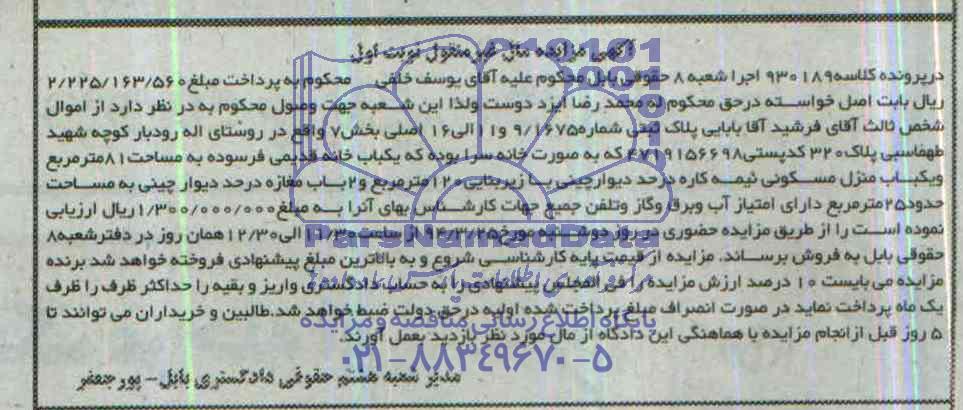 آگهی مزایده مال غیرمنقول نوبت اول
درپرونده کلاسه ۹۳۰۱۸۹ اجرا شعبه ۸ حقوقی بابل محکوم علیه آقای یوسف خلفی محکوم به پرداخت مبلغ ۲/۲۲۵/۱۶۳/۵۶۰
ریال بابت اصل خواسته درحق محکوم له محمد رضا ایزد دوست ولذا این شعبه جهت وصول محکوم به در نظر دارد از اموال
شخص ثالث آقای فرشید آقا بابایی پلاک ثبتی شماره ۹/۱۶۷۵ و ۱۱الی۱۶ اصلی بخش۷ واقع در روستای اله رودبار کوچه شهید
طهماسبی پلاک۳۲۰ کدپستی۴۷۱۹۱۵۶۶۹۸ که به صورت خانه سرا بوده که یکباب خانه قدیمی فرسوده به مساحت ۸۱مترمربع
ویکباب منزل مسکونی نیمه کاره درحد دیوارچینی با زیربنایی۱۲۰مترمربع و۲باب مغازه درحد دیوار چینی به مساحت
حدود۲۵مترمربع دارای امتیاز آب وبرق وگاز وتلفن جمیع جهات کارشناس بهای آنرا به مبلغ۱/۳۰۰/۰۰۰/۰۰۰ریال ارزیابی
نموده است را از طریق مزایده حضوری در روز دوشنبه مورخ۹۴/۳/۲۵ از ساعت ۱۱/۳۰الی۱۲/۳۰همان روز در دفترشعبه۸
حقوقی بابل به فروش برساند. مزایده از قیمت پایه کارشناسی شروع و به بالاترین مبلغ پیشنهادی فروخته خواهد شد برنده
مزایده می بایست ۱۰ درصد ارزش مزایده را فی المجلس پیشنهادی را به حساب دادگستری واریز و بقیه را حداکثر ظرف را ظرف
یک ماه پرداخت نماید در صورت انصراف مبلغ پرداخت شده اولیه درحق دولت ضبط خواهد شد.طالبین و خریداران می توانند تا
۵ روز قبل ازانجام مزایده با هماهنگی این دادگاه از مال مورد نظر بازدید بعمل آورند.
مدیر شعبه هشتم حقوقی دادگستری بابل – پورجعفر
ParsNamadData
پایگاه اطلاع رسانی مناقصه و مزایده
۰۲۱-۸۸۳۴۹۶۷۰-۵